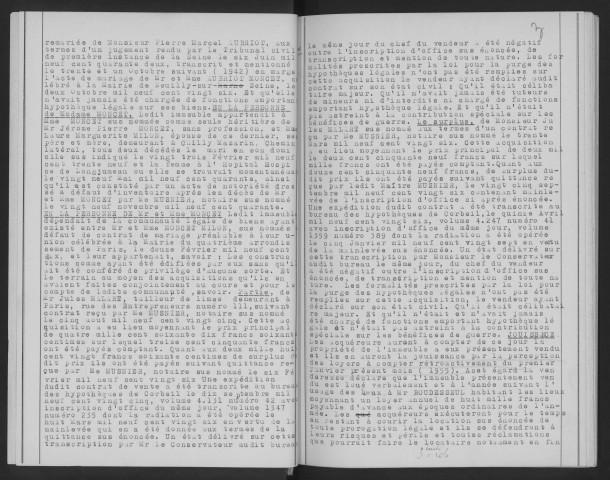 remariée de Monsieur Pierre Marcel AUBRIOT, aux
termes d'un jugement rendu par le Tribunal civil
de première instance de la Seine le six Juin mil
neuf cent quarante deux, transcrit et mentionné
le trente et un Octobre suivant (1942) en marge
l'acte de mariage de Mr et Mme
lébré à la Mairie de Seine, le
deux octobre mil neuf cent vingt six. Et qu'elle
n'avait jamais été chargée de fonctions emportant
hypothèque légale sur ses biens. EN LA PERSONNE
de Madame MONCET. Ledit immeuble appartenait à
Mme MONCET sus nommée comme seule héritière de
Mr Jérome Pierre MONCET, sans profession, et Mme
Laure Marguerite MILON, épouse de ce dernier, ses
père et mère, demeurant à Quilly Mazarin, Chemin
latéral, tous deux décédés le mari en son domi
cile sus indiqué le vingt trois Février mil neuf
cent trente neuf et la femme à l'Hopital Hospice
de Longjumeau ou elle se trouvait momentanément
le vingt neuf Mai mil neuf cent quarante, ainsi
qu'il est constaté par un acte de notoriété dressé
à défaut d'inventaire après les décès de Mr
et Mme MONCET par Me MUSNIER, notaire sus nommé
le vingt neuf novembre mil neuf cent quarante.
EN LA PERSONNE DE Mr et Mme MONCET Ledit immeuble
dépendait de la communauté légale de biens ayant
existé entre Mr et Mme MONCET MILON, sus nommés
défaut de contrat de mariage préalable à leur u-
nion célébrée à la Mairie du quatrième arrondis
sement de Paris, le douze février mil neuf cent
six, et leur appartenait, savoir: Les construc
tions comme ayant été édifiées par eux sans qu'il
ait été conféré de privilège d'aucune sorte. Et
le terrain au moyen des acquisitions qu'ils en
avaient faites conjointement au cours et pour le
compte de ladite communauté, savoir: Partie, de
Mr Jules MALART, tailleur de limes demeurant à
Paris, rue des Entrepreneurs numéro suivant
contrat reçu par Me MUSNIER, notaire sus nommé
le cinq août mil neuf cent vingt cinq. Cette ac
quisition a eu lieu moyennant le prix principal
de quatre mille cent soixante dix francs soixante
centimes sur lequel treize cent cinquante francs
ont été payés comptant. Quant aux deux mille huit
cent vingt francs soixante centimes de surplus du
dit prix ils ont été payés suivant quittance re
çue par Me MUSNIER, notaire sus nommé le six Fé
vrier mil neuf cent vingt six Une expédition
dudit contrat de vente a été transcrite au bureau
des hypothèques de Corbeil le dix septembre mil
neuf cent vingt cinq, volume 4.151 numéro 42 avec
inscription d'office du même jour, volume 1347
numéro 235 dont la radiation a été opérée le
huit Mars mil neuf cent vingt six en vertu de la
mainlevée qui en a été donnée aux termes de la
quittance sus énoncée. Un état délivré sur cette
transcription par Mr le Conservateur audit bureau
le même jour du chef du vendeur a été négatif
outre l'inscription d'office sus énoncée, de
transcription et mention de toute nature. Les for
malités prescrites par la loi pour la purge des
hypothèques légales n'ont pas été remplies sur
cette acquisition le vendeur ayant déclaré audit
contrat sur son état civil: Qu'il était céliba
taire majeur. Qu'il n'avait jamais été tuteur
de mineurs ni d'interdits ni chargé de fonctions
emportant hypothèque légale. Et qu'il n'était
pas astreint à la contribution spéciale sur les
bénéfices de guerre. Le surplus, de Monsieur Ju
les MALART sus nommé aux termes d'un contrat re
çu par Me MUSNIER, notaire sus nommé le trente
Mars mil neuf cent vingt six. Cette acquisition
a eu lieu moyennant le prix principal de deux mil
le deux cent cinquante neuf francs sur lequel
mille francs ont été payés comptant. Quant aux
douze cent cinquante neuf francs, de surplus du-
dit prix ils ont été payés suivant quittance re
çue par ledit Maître MUSNIER, le vingt cinq sep-
tembre mil neuf cent vingt six contenant mainle-
vée de l'inscription d'office ci après énoncée.
Une expédition dudit contrat a été transcrite au
bureau des hypothèques de Corbeil, le quinze Avril
mil neuf cent vingt six, volume 4.247 numéro 41
avec inscription d'office du même jour, volume
1359 numéro 389 dont la radiation a été opérée
le cinq Janvier mil neuf cent vingt sept en vertu
de la mainlevée sus énoncée. Un état délivré sur
cette transcription par Monsieur le Conservateur
audit bureau le même jour, du chef du vendeur
a été négatif outre l'inscription d'office sus
énoncée, de transcription et mention de toute na
ture. Les formalités prescrites par la loi pour
la purge des hypothèques légales n'ont pas été
remplies sur cette acquisition, le vendeur ayant
déclaré sur son état civil. Qu'il était célibatai
re majeur. Et qu'il n'était et n'avait jamais
été chargé de fonctions emportant hypothèque lé
gale et n'était pas astreint à la contribution
spéciale sur les bénéfices de guerre. JOUISSANCE
Les acquéreurs auront à compter de ce jour la
propriété de l'immeuble à eux présentement vendu
et ils en auront la jouissance par la perception
des loyers à compter rétroactivement du premier
Janvier présent mois (1955). A cet égard la ven
deresse déclare que l'immeuble présentement ven
du est loué verbalement et à l'année suivant l'
usage des lieux à Mr BOUDESSEUL habitant les lieux
moyennant un loyer annuel de huit mille francs
payable d'avance aux époques ordinaires de l'an-
née. Les acquéreurs exécuteront pour le temps
en restant à courir la location sus énoncée de
toute prorogation légale et ils se défendront à
leurs risques et périls et toutes réclamations
que pourrait faire le locataire notamment en fin